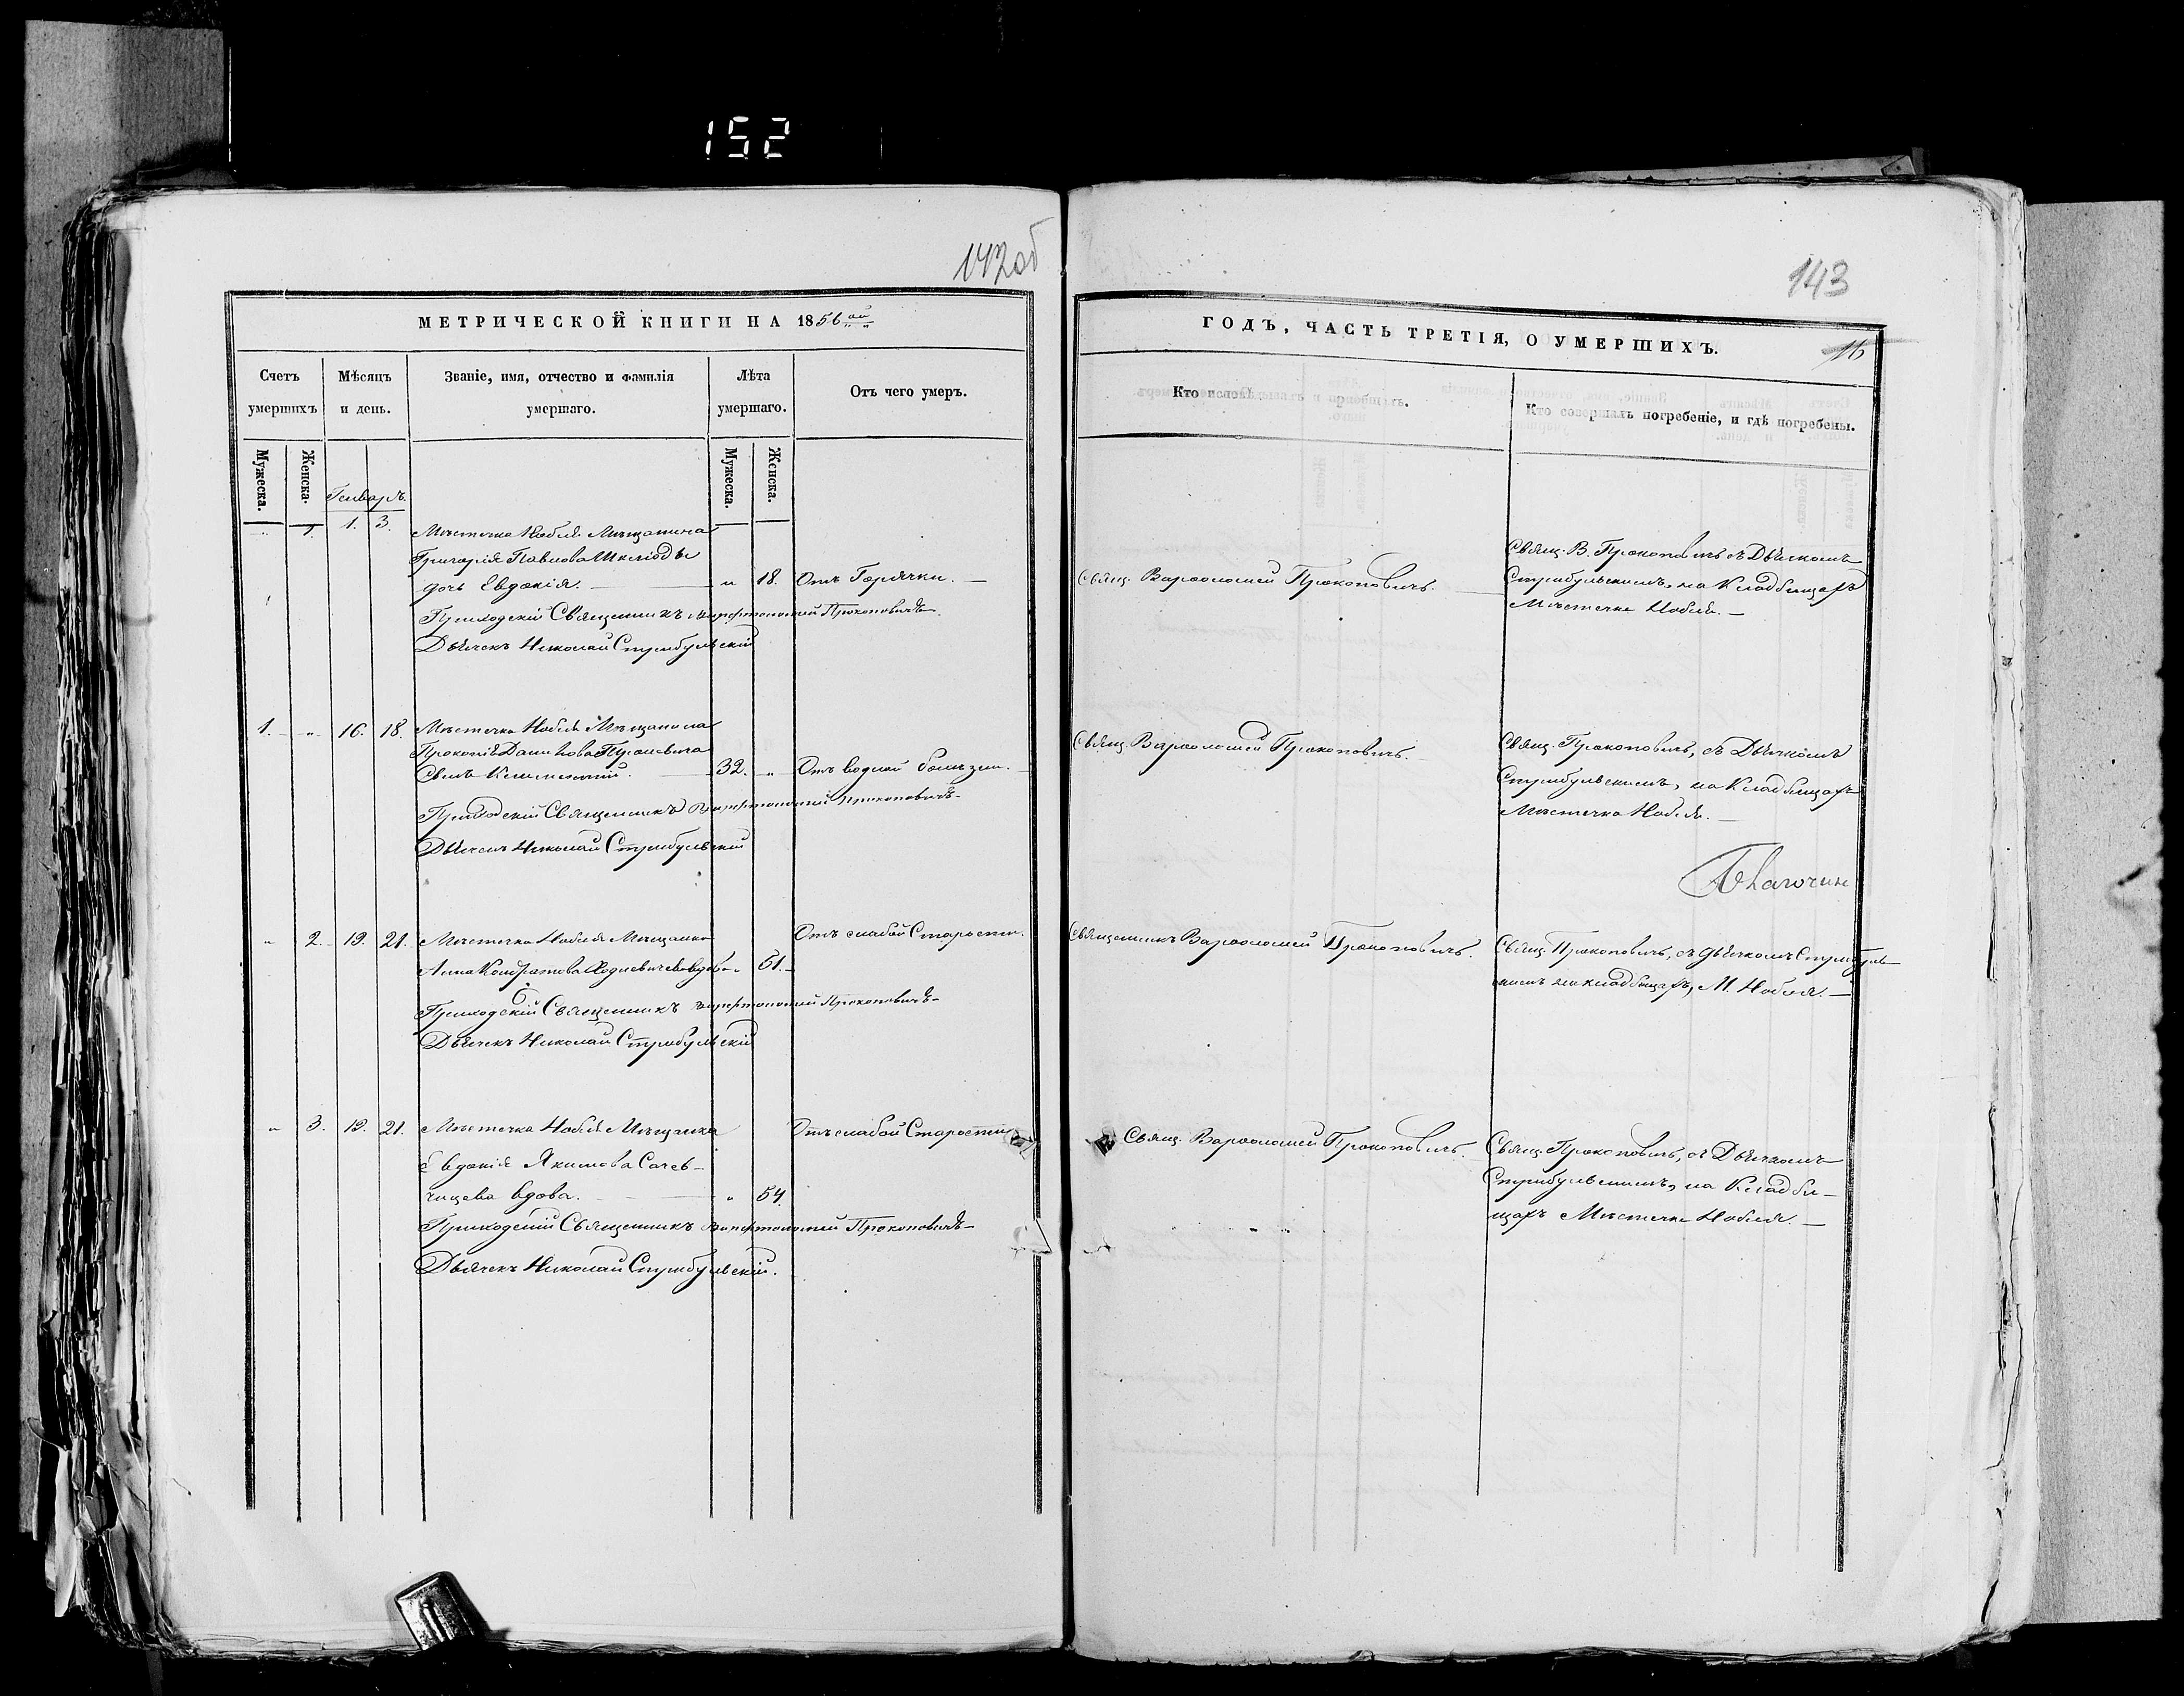 152
142об
143
МЕТРИЧЕСКОЙ КНИГИ НА 1856ой
ГОДЪ, ЧАСТЬ ТРЕТІЯ, О УМЕРШИХЪ.
16
Счетъ умершихъ
Мѣсяцъ и день.
Званіе, имя, отчество и фамилія умершаго.
Лѣта умершаго.
Отъ чего умеръ.
Кто исповѣдывалъ и пріобщалъ.
Кто совершалъ погребеніе, и гдѣ погребены.
Мужеска.
Женска.
Мужеска.
Женска.
Генварь.
„ 1. 1. 3.
Мѣстечка Нобля Мѣщанина
Григорія Павлова
дочь Евдокія. — „ 18. Отъ Горячки. —
Приходскій Священникъ Варфоломей Прокоповичъ.
Дьячекъ Николай Стрибульскій
Свящ. Варфоломей Прокоповичъ.
Свящ. В. Прокоповичъ съ Дьячкомъ
Стрибульскимъ, на Кладбищѣ
Мѣстечка Нобля. —
1. „ 16. 18. Мѣстечка Нобля Мѣщанина
Прокопія Данилова
Сынъ 32. „ Отъ водной болѣзни.
Приходскій Священникъ Варфоломей Прокоповичъ.
Дьячекъ Николай Стрибульскій
Свящ. Варфоломей Прокоповичъ.
Свящ. Прокоповичъ, съ Дьячкомъ
Стрибульскимъ, на Кладбищѣ
Мѣстечка Нобля. —
„ 2. 19. 21. Мѣстечка Нобля Мѣщанка Отъ слабой Старости.
Анна Кондратова вдова „ 51.
Приходскій Священникъ Варфоломей Прокоповичъ.
Дьячекъ Николай Стрибульскій
Священникъ Варфоломей Прокоповичъ.
Свящ. Прокоповичъ, съ дьячкомъ Стрибуль
скимъ на кладбищѣ, М. Нобля. —
„ 3. 19. 21. Мѣстечка Нобля Мѣщанка Отъ слабой Старости
Евдокія Якимова
вдова. — „ 54
Приходскій Священникъ Варфоломей Прокоповичъ
Дьячекъ Николай Стрибульскій.
Свящ. Варфоломей Прокоповичъ.
Свящ. Прокоповичъ, съ Дьячкомъ
Стрибульскимъ, на Кладби-
щѣ Мѣстечка Нобля. —